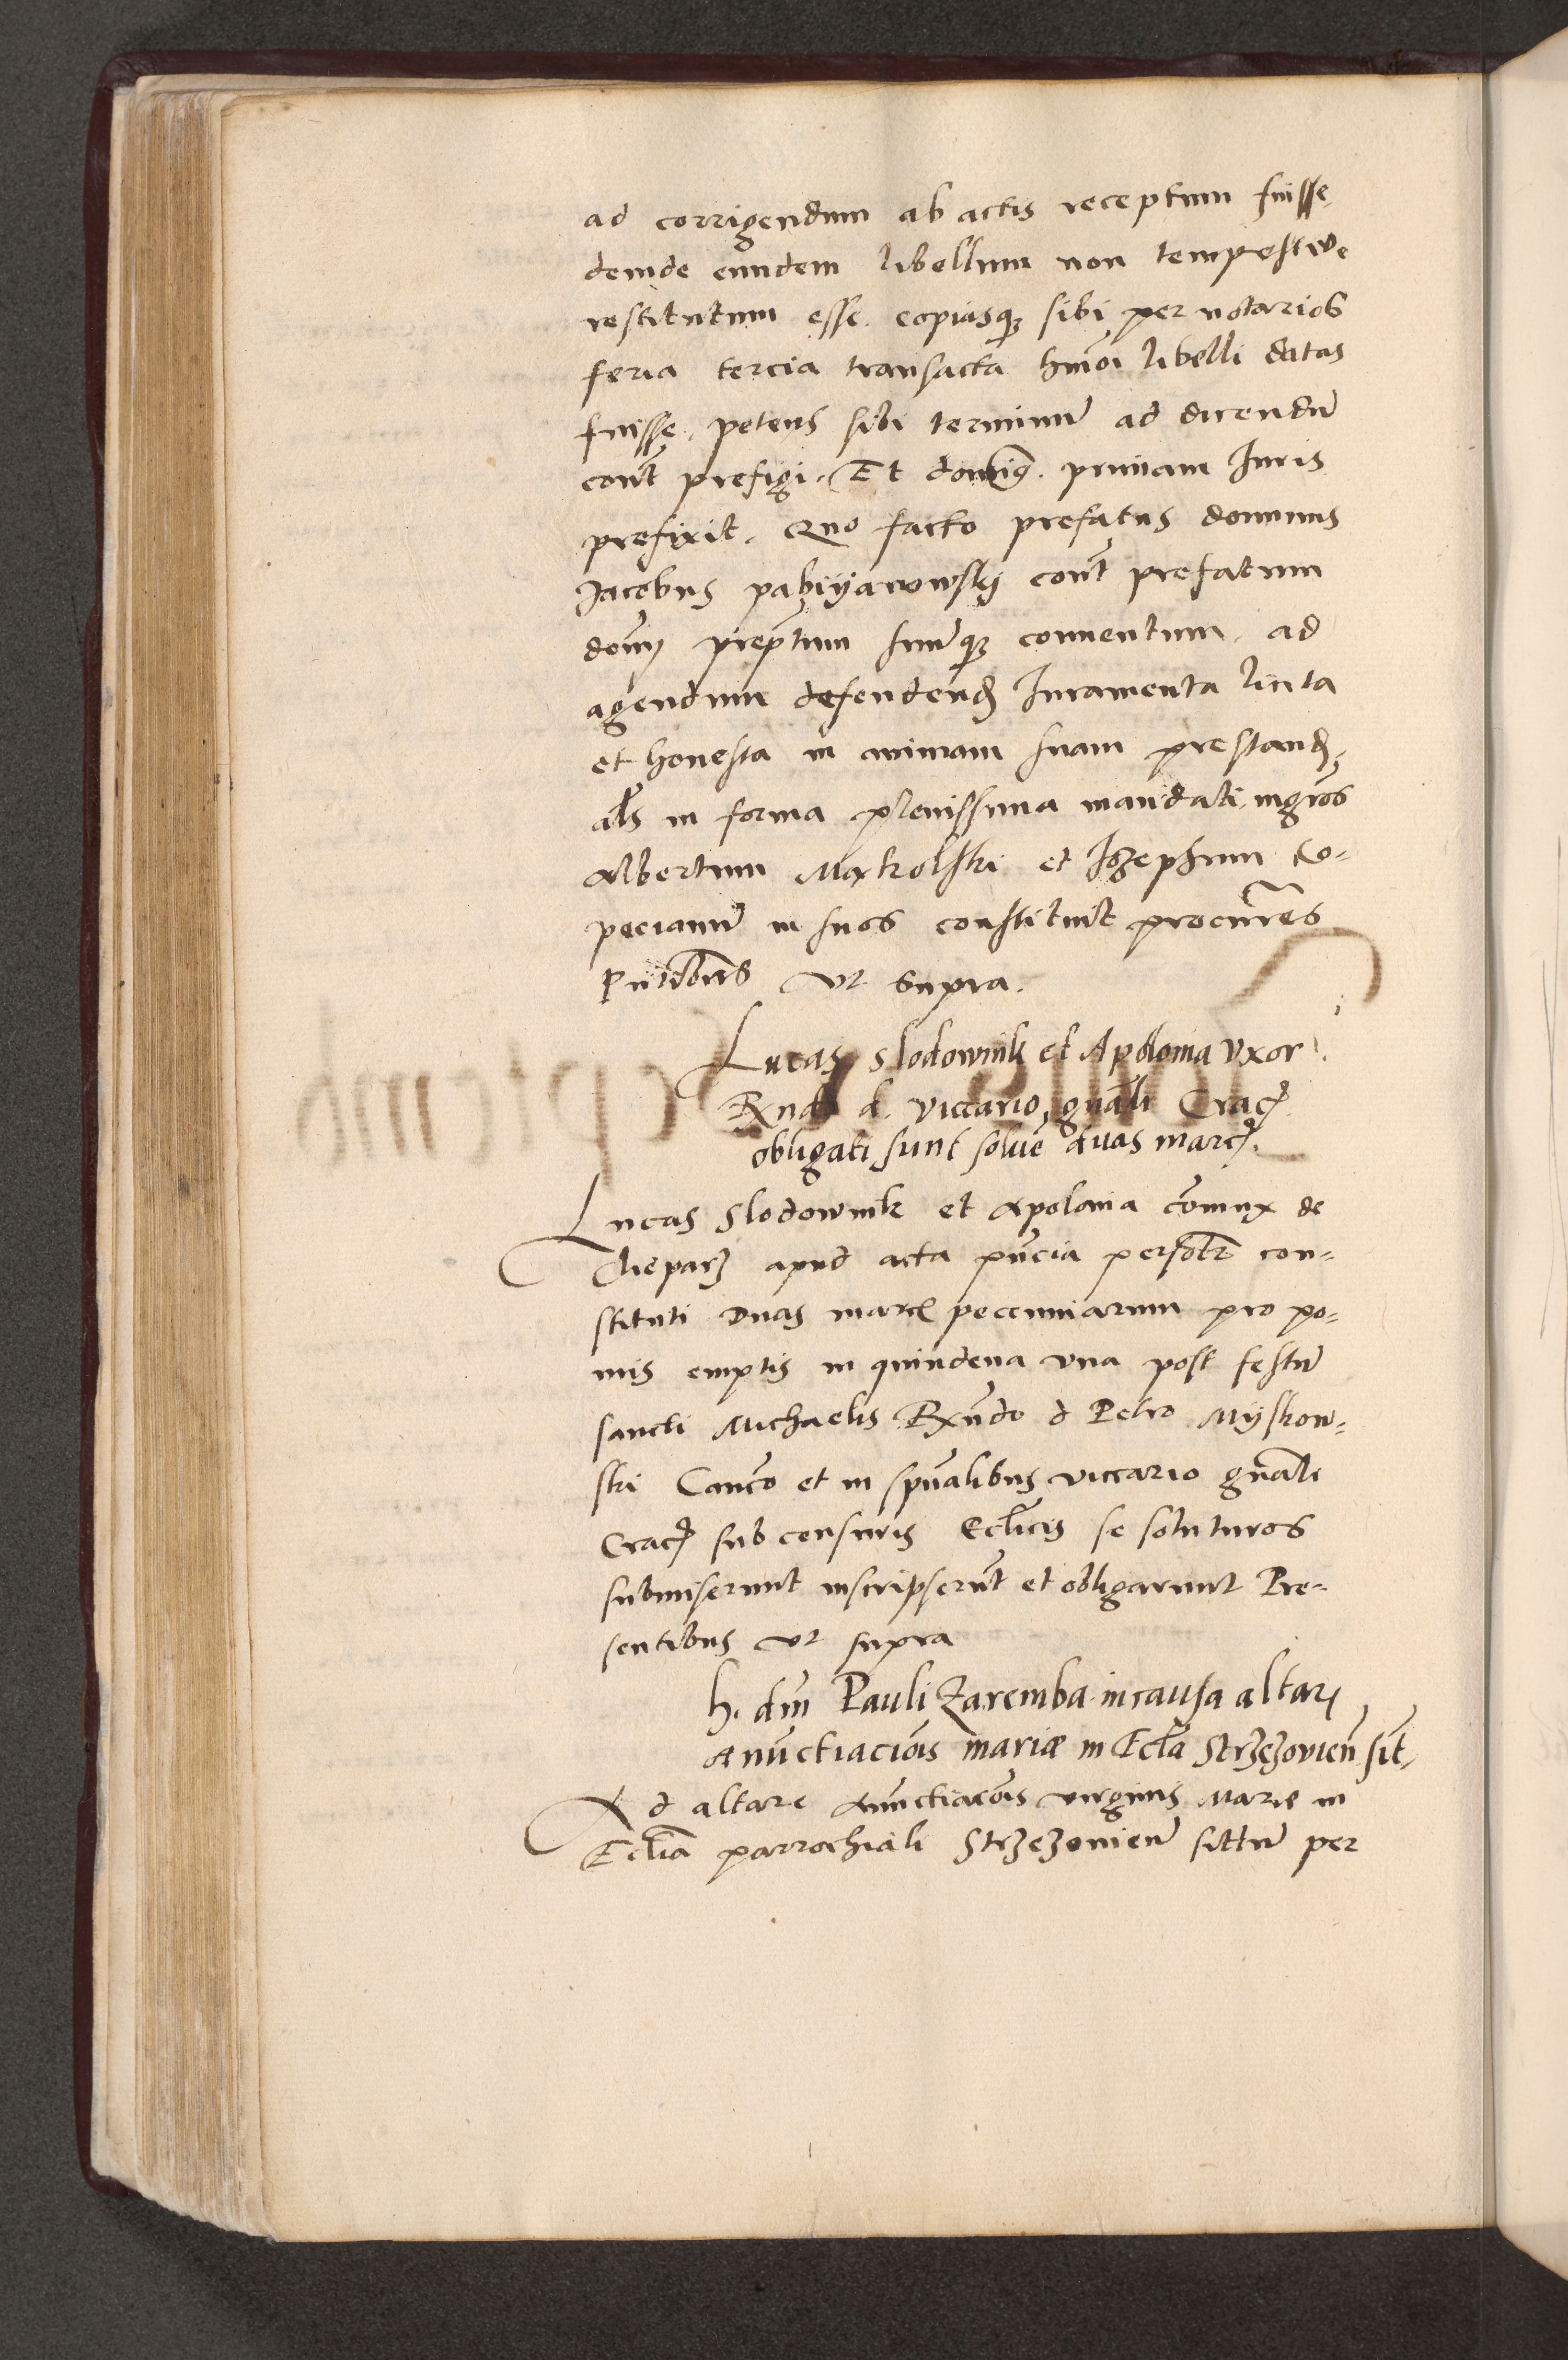 ad corrigendum ab actis receptum fuisse
deinde eundem libellum non tempestive
restitutum esse. copiasqꝫ sibi per notarios
feria tercia transacta hmoi libelli datas
fuisse, petens sibi terminū ad dicendū
cont̄ prefigi. Et dominꝰ primam Iuris
prefixit. Quo facto prefatus dominus
Jacobus pabiyanowskj cont̄ prefatum
dom̄ prep̄tum suūqꝫ conuentum, ad
agendum defendend Iuramenta licita
et honesta in animam suam prestand,
als in forma plenissima mandati, mgros
Albertum Mαkolski et Iozephum Co-
pecianū in suos constituit procurēs
Pntibus vt supra.
Lucas Slodownik et Apolonia Vxor
Rndo d. viccario gnāli Crac
obligati sunt soluē duas marc.
Lucas Slodownik et Apolonia coniux de
Clieparz apud acta pn̄cia persolr̄ con-
stituti Duas marc peccuniarum pro po-
mis emptis in quindena vna post festū
sancti Michaelis Rxndo d Petro Myskow-
ski Canco et in spualibus viccario gnāli
Crac sub censuris Eclicis se soluturos
submiserunt inscripserūt et obligarunt Pre-
sentibus vt supra
h. dm̄ Pauli Zaremba in causa altari
Anūctiaciois mariæ in Eclā Strzezovien̄ sit̄,
Ad altare Anunctiacois virginis Marie in
Eclia parrochiali Strzezouien̄ sittū per